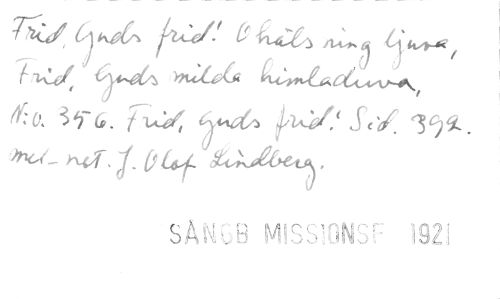 Frid, Guds frid! O hälsning ljuva,
Frid, Guds milda himladuva,
N:o. 356. Frid, Guds frid! Sid. 392.
mel-not. J. Olof Lindberg.
SÅNGB MISSIONSF 1921